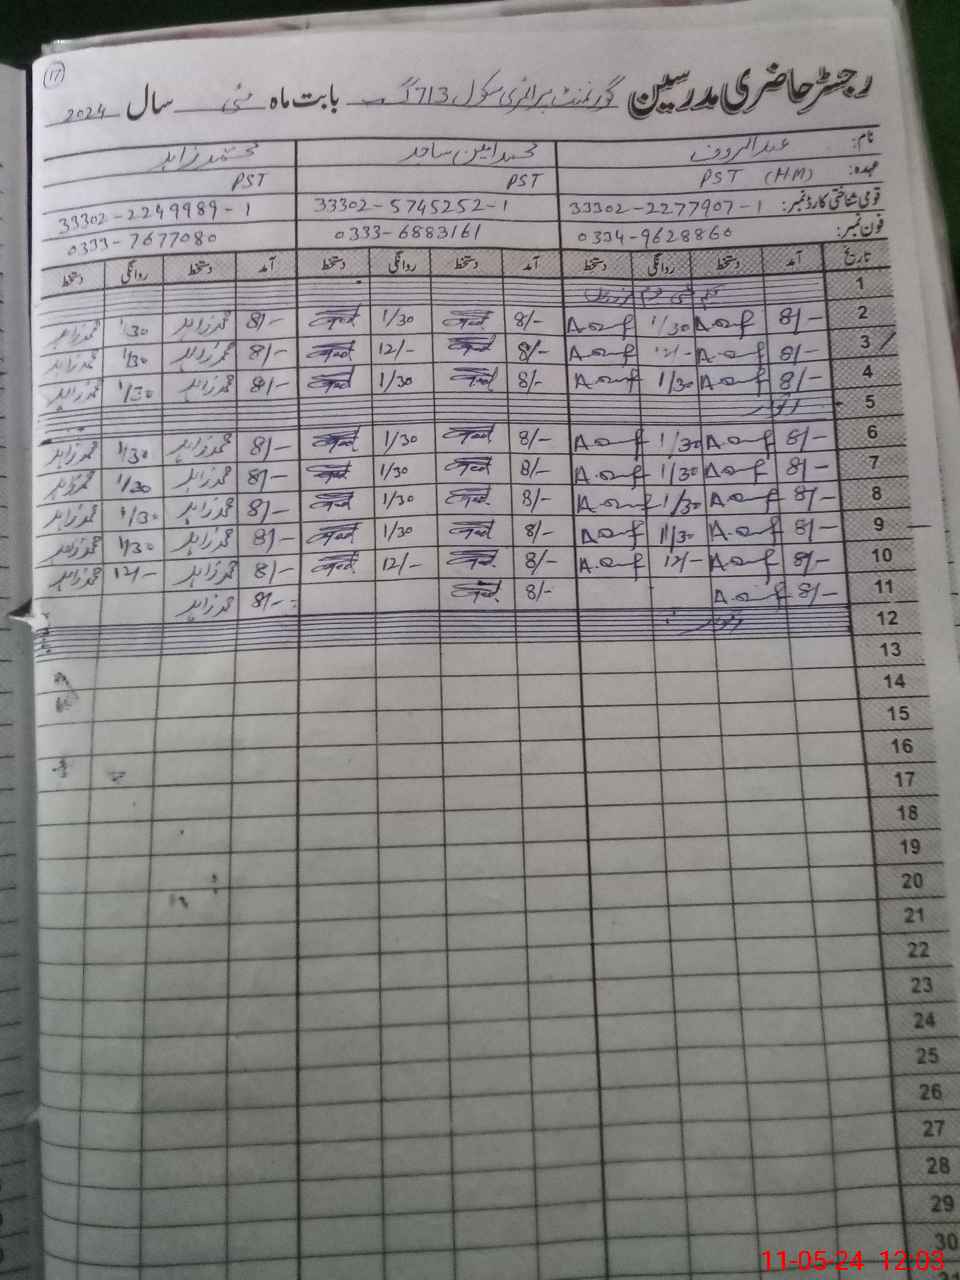 17
رجسٹر حاضری مدرسین گورنمنٹ پرائمری سکول 713 گ ب بابت ماہ مئی سال 2024
نام: عبدالروف محمد امین ساجد محمد زاہد
عہدہ: PST (HM) PST PST
قومی شناختی کارڈ نمبر: 33302-2277907-1 33302-5745252-1 33302-2249989-1
فون نمبر: 0334-9628860 0333-6883161 0333-7677080
تاریخ آمد دستخط روانگی دستخط آمد دستخط روانگی دستخط آمد دستخط روانگی دستخط
1 یکم مئی یوم مزدوراں
2 8/- 1/30 8/- 1/30 8/- محمد زاہد 1/30 محمد زاہد
3 8/- 12/- 8/- 12/- 8/- محمد زاہد 1/30 محمد زاہد
4 8/- 1/30 8/- 1/30 8/- محمد زاہد 1/30 محمد زاہد
5 اتوار
6 8/- 1/30 8/- 1/30 8/- محمد زاہد 1/30 محمد زاہد
7 8/- 1/30 8/- 1/30 8/- محمد زاہد 1/30 محمد زاہد
8 8/- 1/30 8/- 1/30 8/- محمد زاہد 1/30 محمد زاہد
9 8/- 1/30 8/- 1/30 8/- محمد زاہد 1/30 محمد زاہد
10 8/- 12/- 8/- 12/- 8/- محمد زاہد 12/- محمد زاہد
11 8/- 8/- 8/- محمد زاہد
12 اتوار
13
14
15
16
17
18
19
20
21
22
23
24
25
26
27
28
29
30
31
11-05-24 12:03